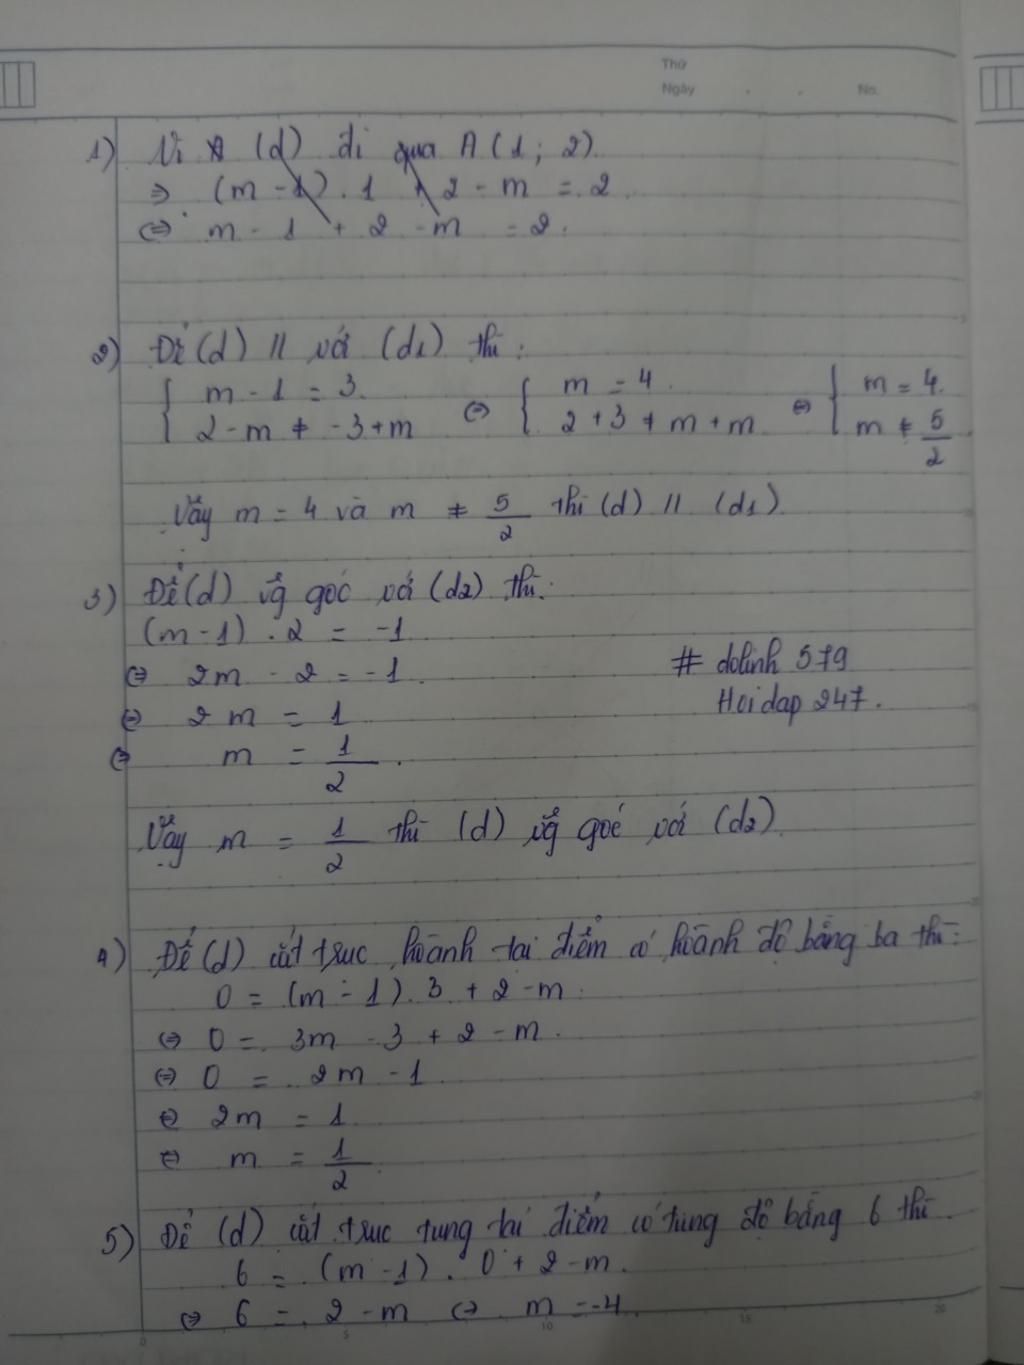 Thứ
Ngày No.
1) Vì (d) đi qua A (1; 2).
=> (m - 1) . 1 + 2 - m = 2
<=> m - 1 + 2 - m = 2.
2) Để (d) // với (d1) thì:
{ m - 1 = 3. <=> { m = 4. <=> { m = 4.
2 - m ≠ -3 + m 2 + 3 ≠ m + m m ≠ 5/2
Vậy m = 4 và m ≠ 5/2 thì (d) // (d1)
3) Để (d) vg góc với (d2) thì:
(m - 1) . 2 = -1
<=> 2m - 2 = -1.
<=> 2m = 1
<=> m = 1/2.
# dolinh 579
Hoidap 247.
Vậy m = 1/2 thì (d) vg góc với (d2)
4) Để (d) cắt trục hoành tại điểm có hoành độ bằng ba thì:
0 = (m - 1). 3 + 2 - m
<=> 0 = 3m - 3 + 2 - m.
<=> 0 = 2m - 1
<=> 2m = 1
<=> m = 1/2
5) Để (d) cắt trục tung tại điểm có tung độ bằng 6 thì
6 = (m - 1) . 0 + 2 - m.
<=> 6 = 2 - m <=> m = -4.
0 5 10 15 20